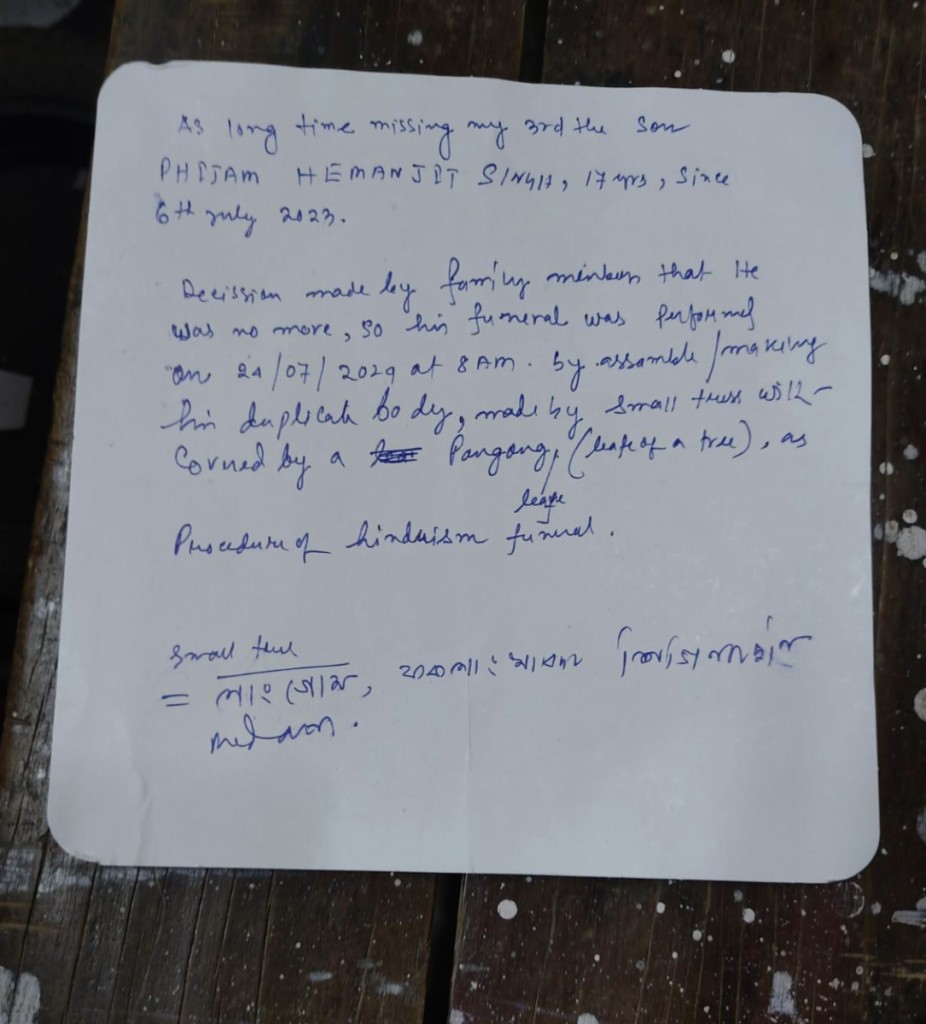 As long time missing my 3rd the son
PHIJAM HEMANJIT SINGH, 17 yrs, Since
6th july 2023.
Decission made by family members that He
was no more, so his funeral was performed
on 24/07/2024 at 8 AM. by assamble/making
his duplicate body, made by small trees with
Corved by a Pangong, (leafe of a tree), as
leafe
Procedure of hinduism funeral.
small tree
= পাংগোৱ,